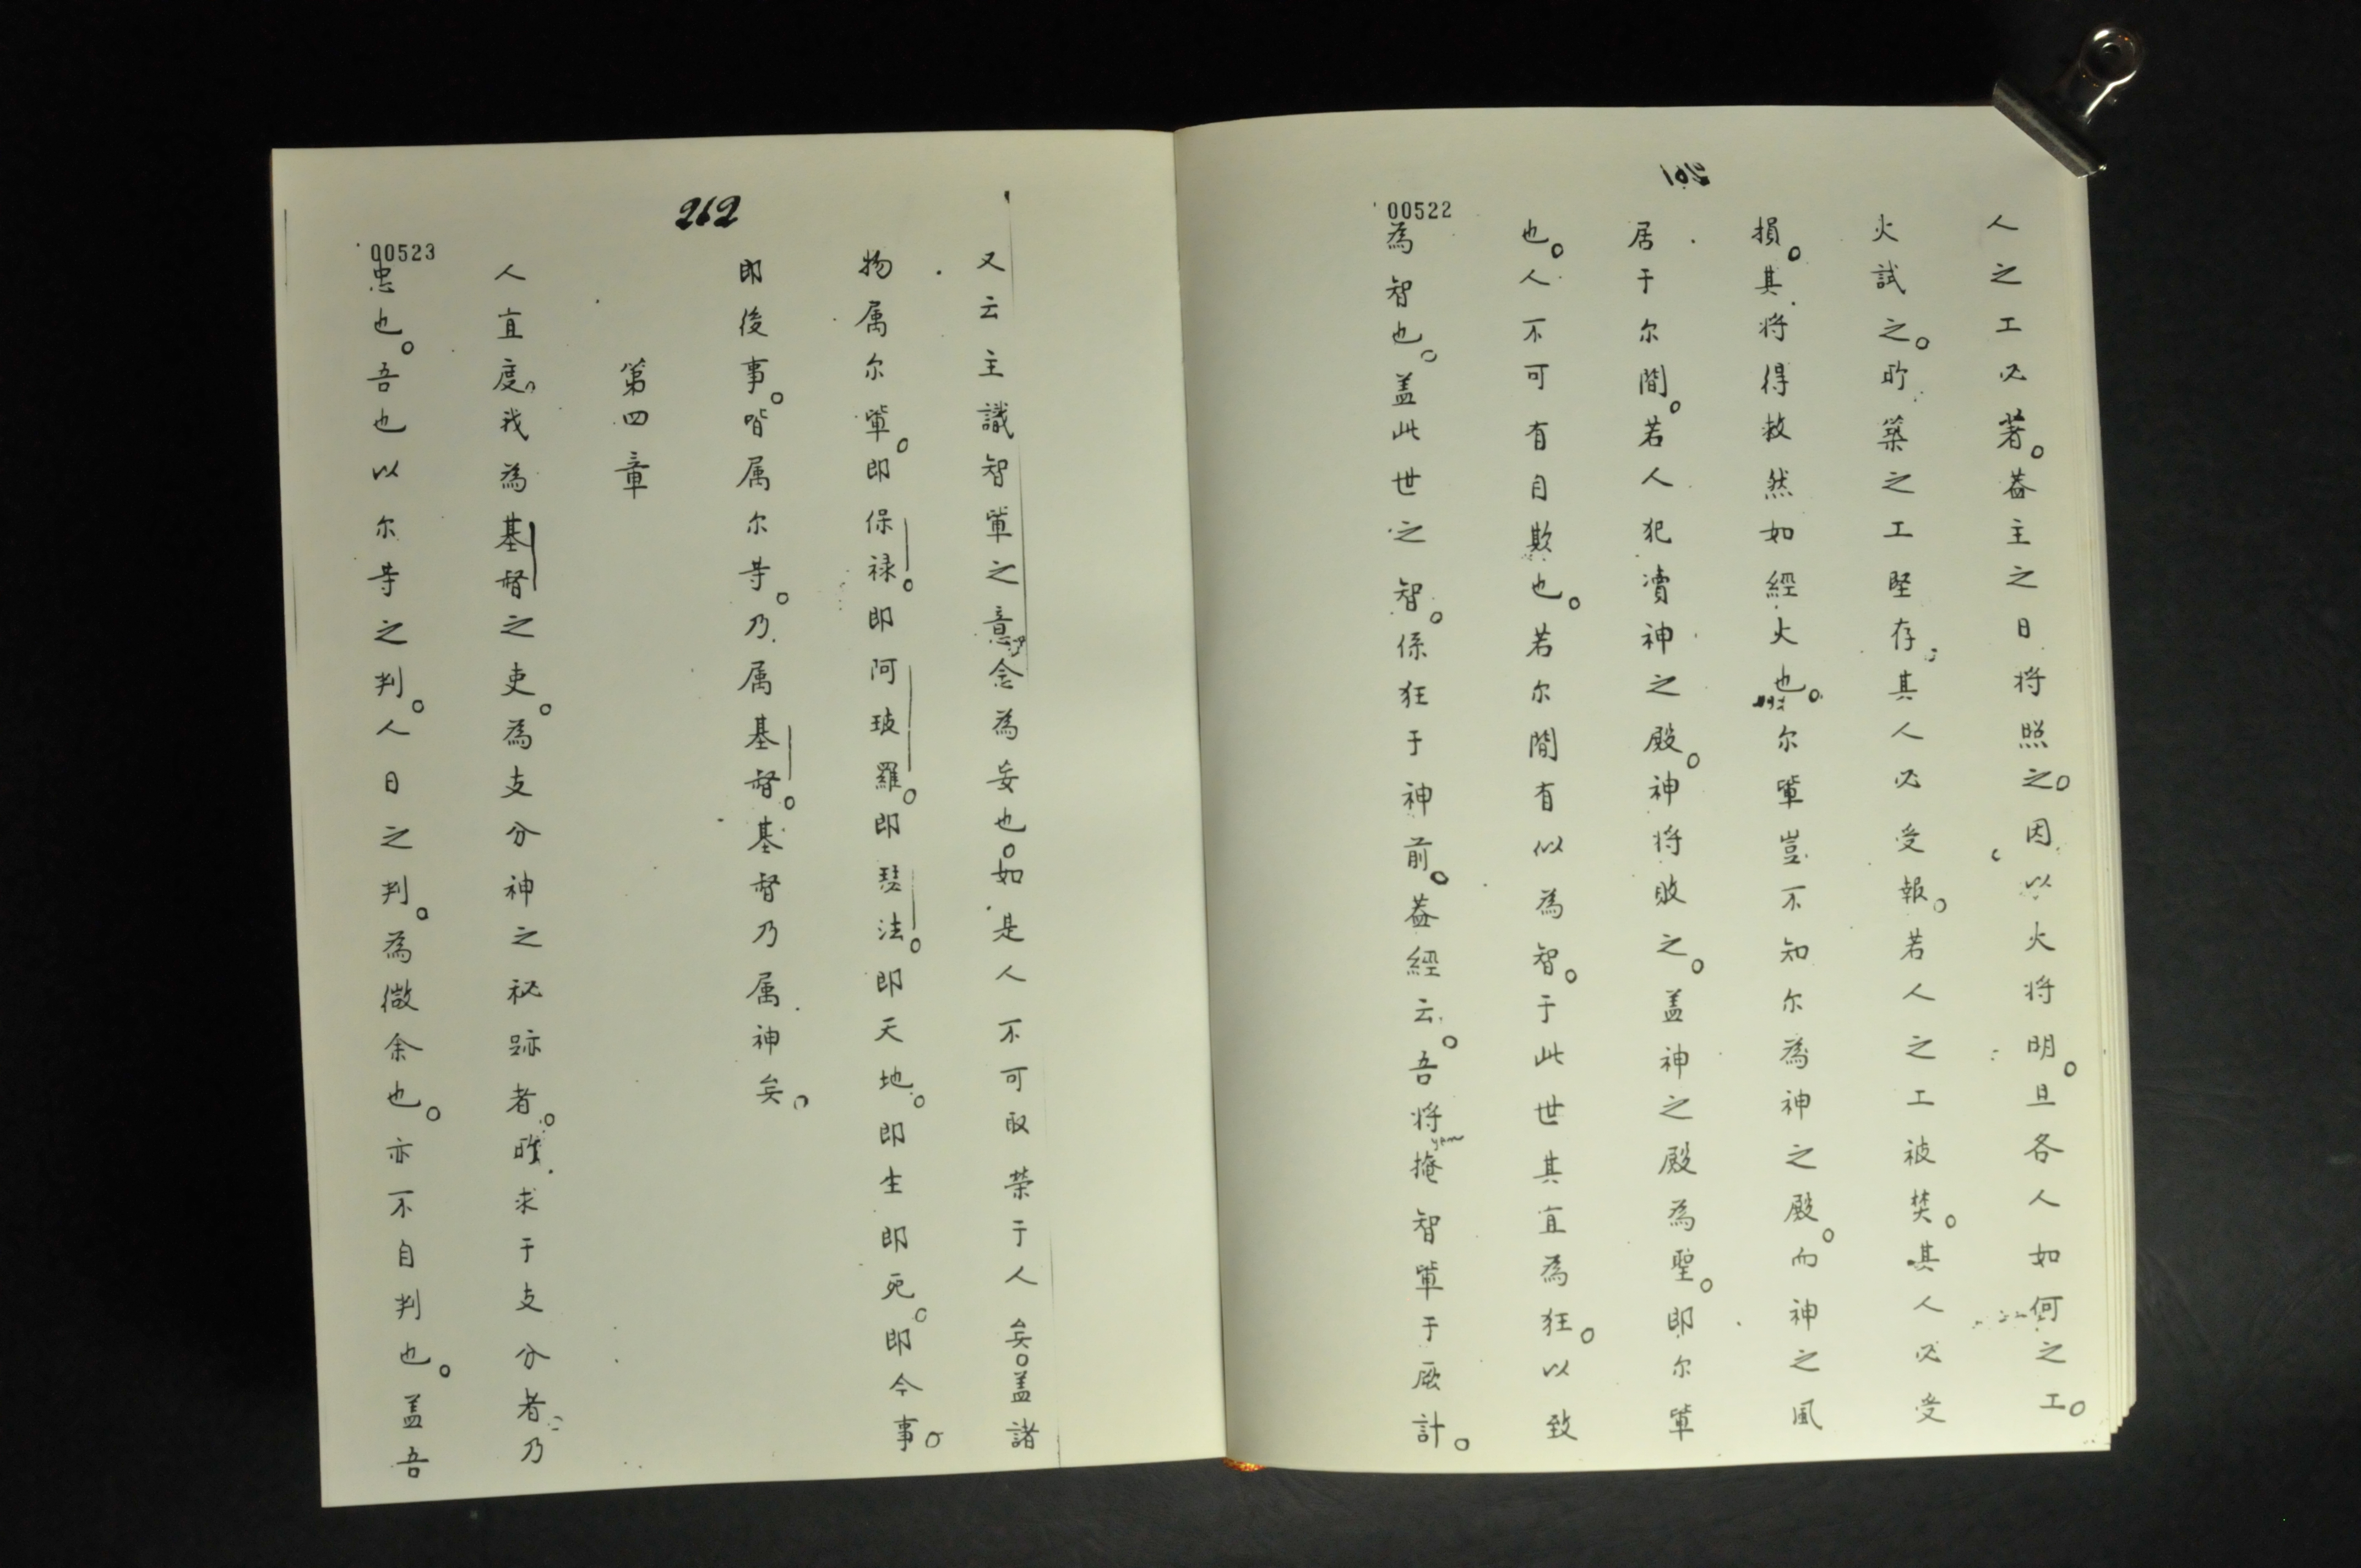 261
00522
人之工必著。盖主之日将照之。因以火将明。旦各人如何之工。
火試之。所築之工堅存。其人必受報。若人之工被焚。其人必受
損。其将得救然如經火也。尔軰豈不知尔為神之殿。而神之風
居于尔間。若人犯凟神之殿。神将敗之。盖神之殿為聖。即尔軰
也。人不可有自欺也。若尔間有似為智。于此世其宜為狂。以致
為智也。盖此世之智。係狂于神前。盖經云。吾将掩智軰于厥計。
262
00523
又云主識智軰之意念為妄也。如是人不可取荣于人矣。盖諸
物属尔軰。即保禄。即阿玻羅。即琵法。即天地。即生即死。即今事。
即後事。皆属尔等。乃属基督。基督乃属神矣。
第四章
人宜度我為基督之吏。為支分神之祕跡者。所求于支分者。乃
忠也。吾也以尔等之判。人日之判。為微余也。亦不自判也。盖吾